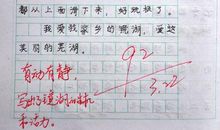 都从上面滑下来，好玩极了。
我爱我家乡的芜湖，爱这
美丽的芜湖。
92
3.22
有动有静，
写出了镜湖的生机
和活力。